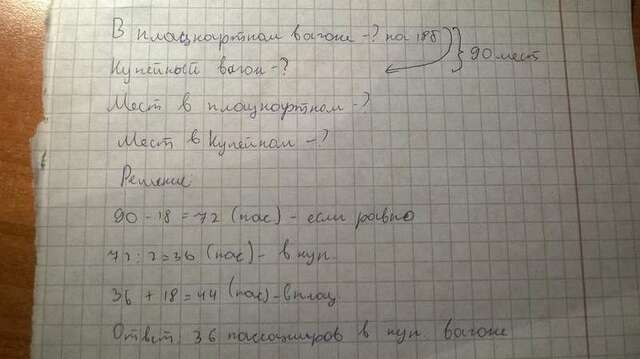 В плацкартном вагоне -? на 18б } 90 мест
Купейный вагон -?
Мест в плацкартном -?
Мест в Купейном -?
Решение
90 - 18 = 72 (пас) - если равно
72 : 2 = 36 (пас) - в куп
36 + 18 = 44 (пас) - в плац
Ответ: 36 пассажиров в куп. вагоне